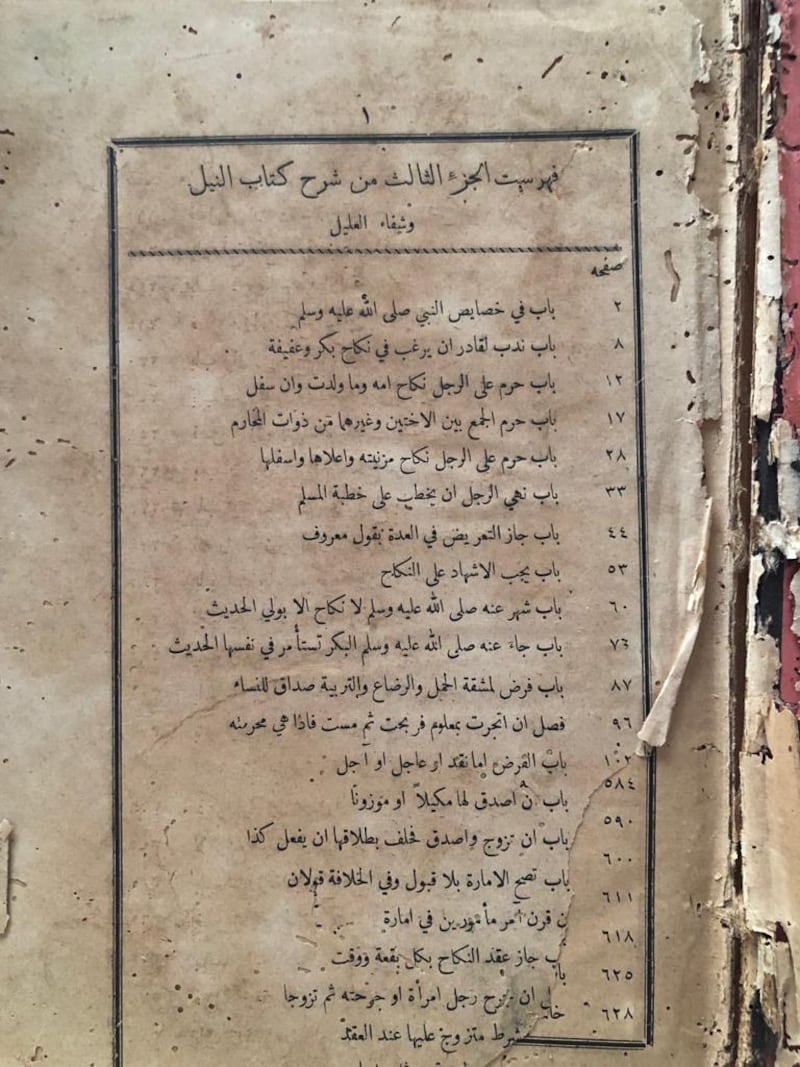 ١
فهرست الجزء الثالث من شرح كتاب النيل
وشفاء العليل
صفحه
٢ باب في خصايص النبي صلى الله عليه وسلم
٨ باب ندب لقادر ان يرغب في نكاح بكر وعفيفة
١٢ باب حرم على الرجل نكاح امه وما ولدت وان سفل
١٧ باب حرم الجمع بين الاختين وغيرهما من ذوات المحارم
٢٨ باب حرم على الرجل نكاح مزنيته واعلاها واسفلها
٣٣ باب نهي الرجل ان يخطب على خطبة المسلم
٤٤ باب جاز التعريض في العدة بقول معروف
٥٣ باب يجب الاشهاد على النكاح
٦٠ باب شهر عنه صلى الله عليه وسلم لا نكاح الا بولي الحديث
٧٦ باب جاء عنه صلى الله عليه وسلم البكر تستأمر في نفسها الحديث
٨٧ باب فرض لمشقة الحمل والرضاع والتربية صداق للنساء
٩٦ فصل ان اتجرت بمعلوم فربحت ثم مست فاذا هي محرمته
١٠٢ باب الفرض اما نقد او عاجل او آجل
٥٨٤
باب ن اصدق لها مكيلاً او موزونا
٥٩٠
باب ان تزوج واصدق فحلف بطلاقها ان يفعل كذا
٦٠٠
باب تصح الامارة بلا قبول وفي الخلافة قولان
٦١١
ن قرن آمر مأمورين في امارة
٦١٨
ب جاز عقد النكاح بكل بقعة ووقت
٦٢٥ با
ان رجل امرأة او جرحته ثم تزوجا
٦٢٨ خا
شرط متزوج عليها عند العقد